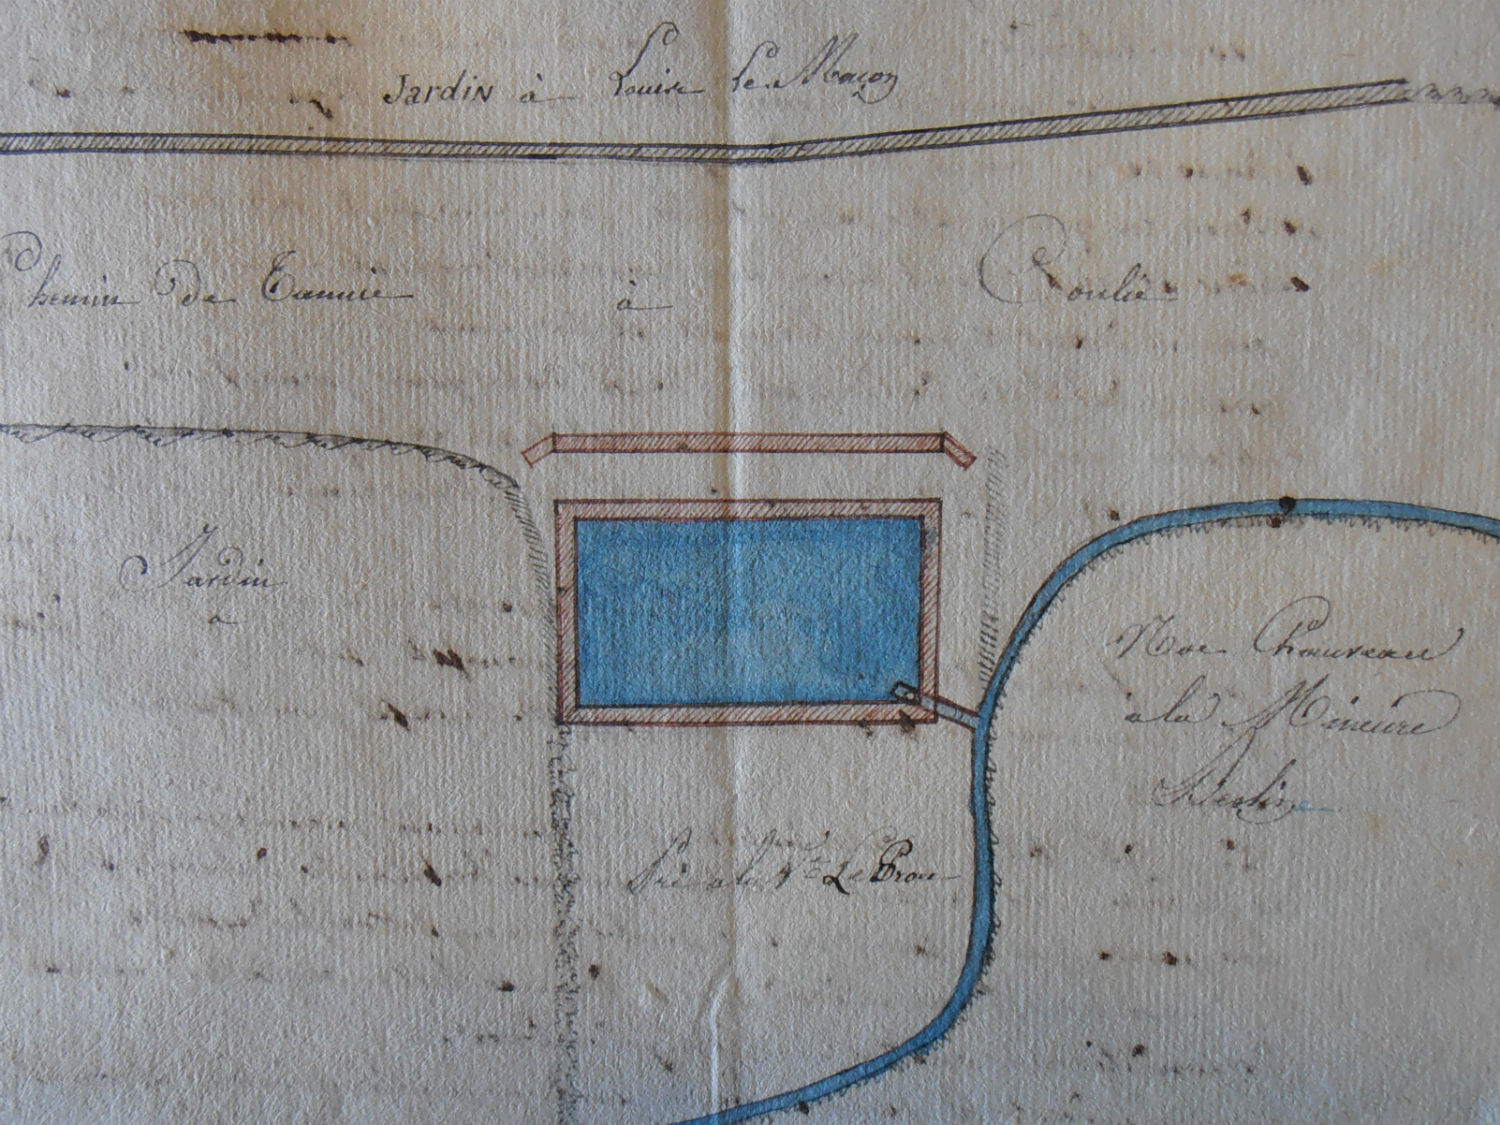 Jardin à Louise Le Maçon
Chemin De Tannie à Coulié
Jardin
a
Noe Chauveau
a la Mineure
Pré a la Ve LeBrou